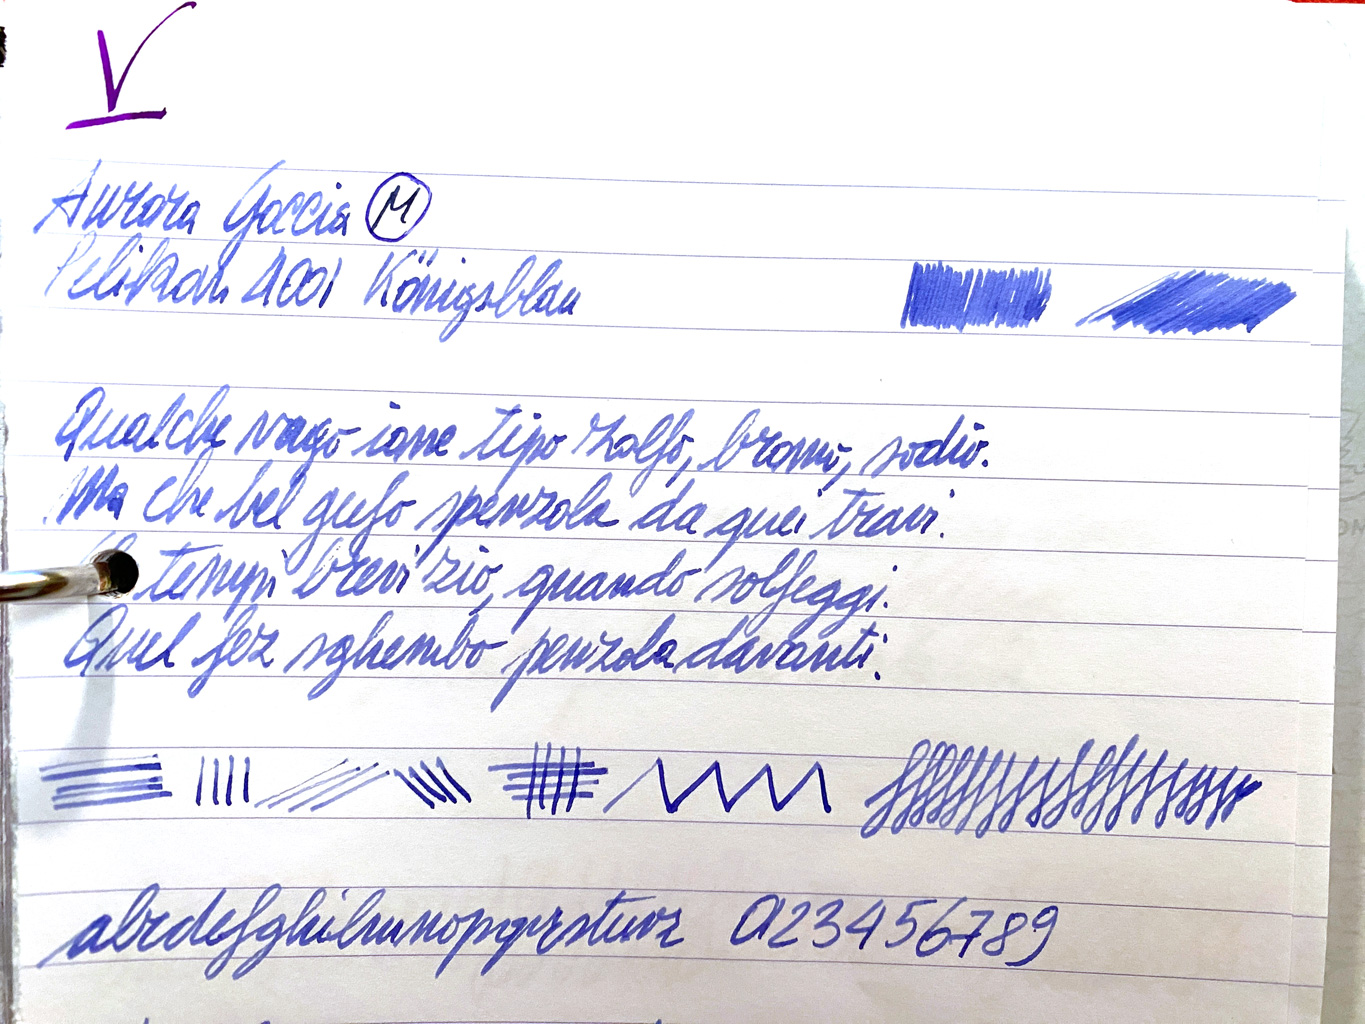 V
Aurora Goccia M
Pelikan 4001 Königsblau
Qualche vago ione tipo zolfo, bromo, sodio.
Ma che bel gufo spenzola da quei travi.
tempi brevi zio, quando solfeggi.
Quel fez sghembo penzola davanti.
abcdefghilmnopqrstuvz 0123456789